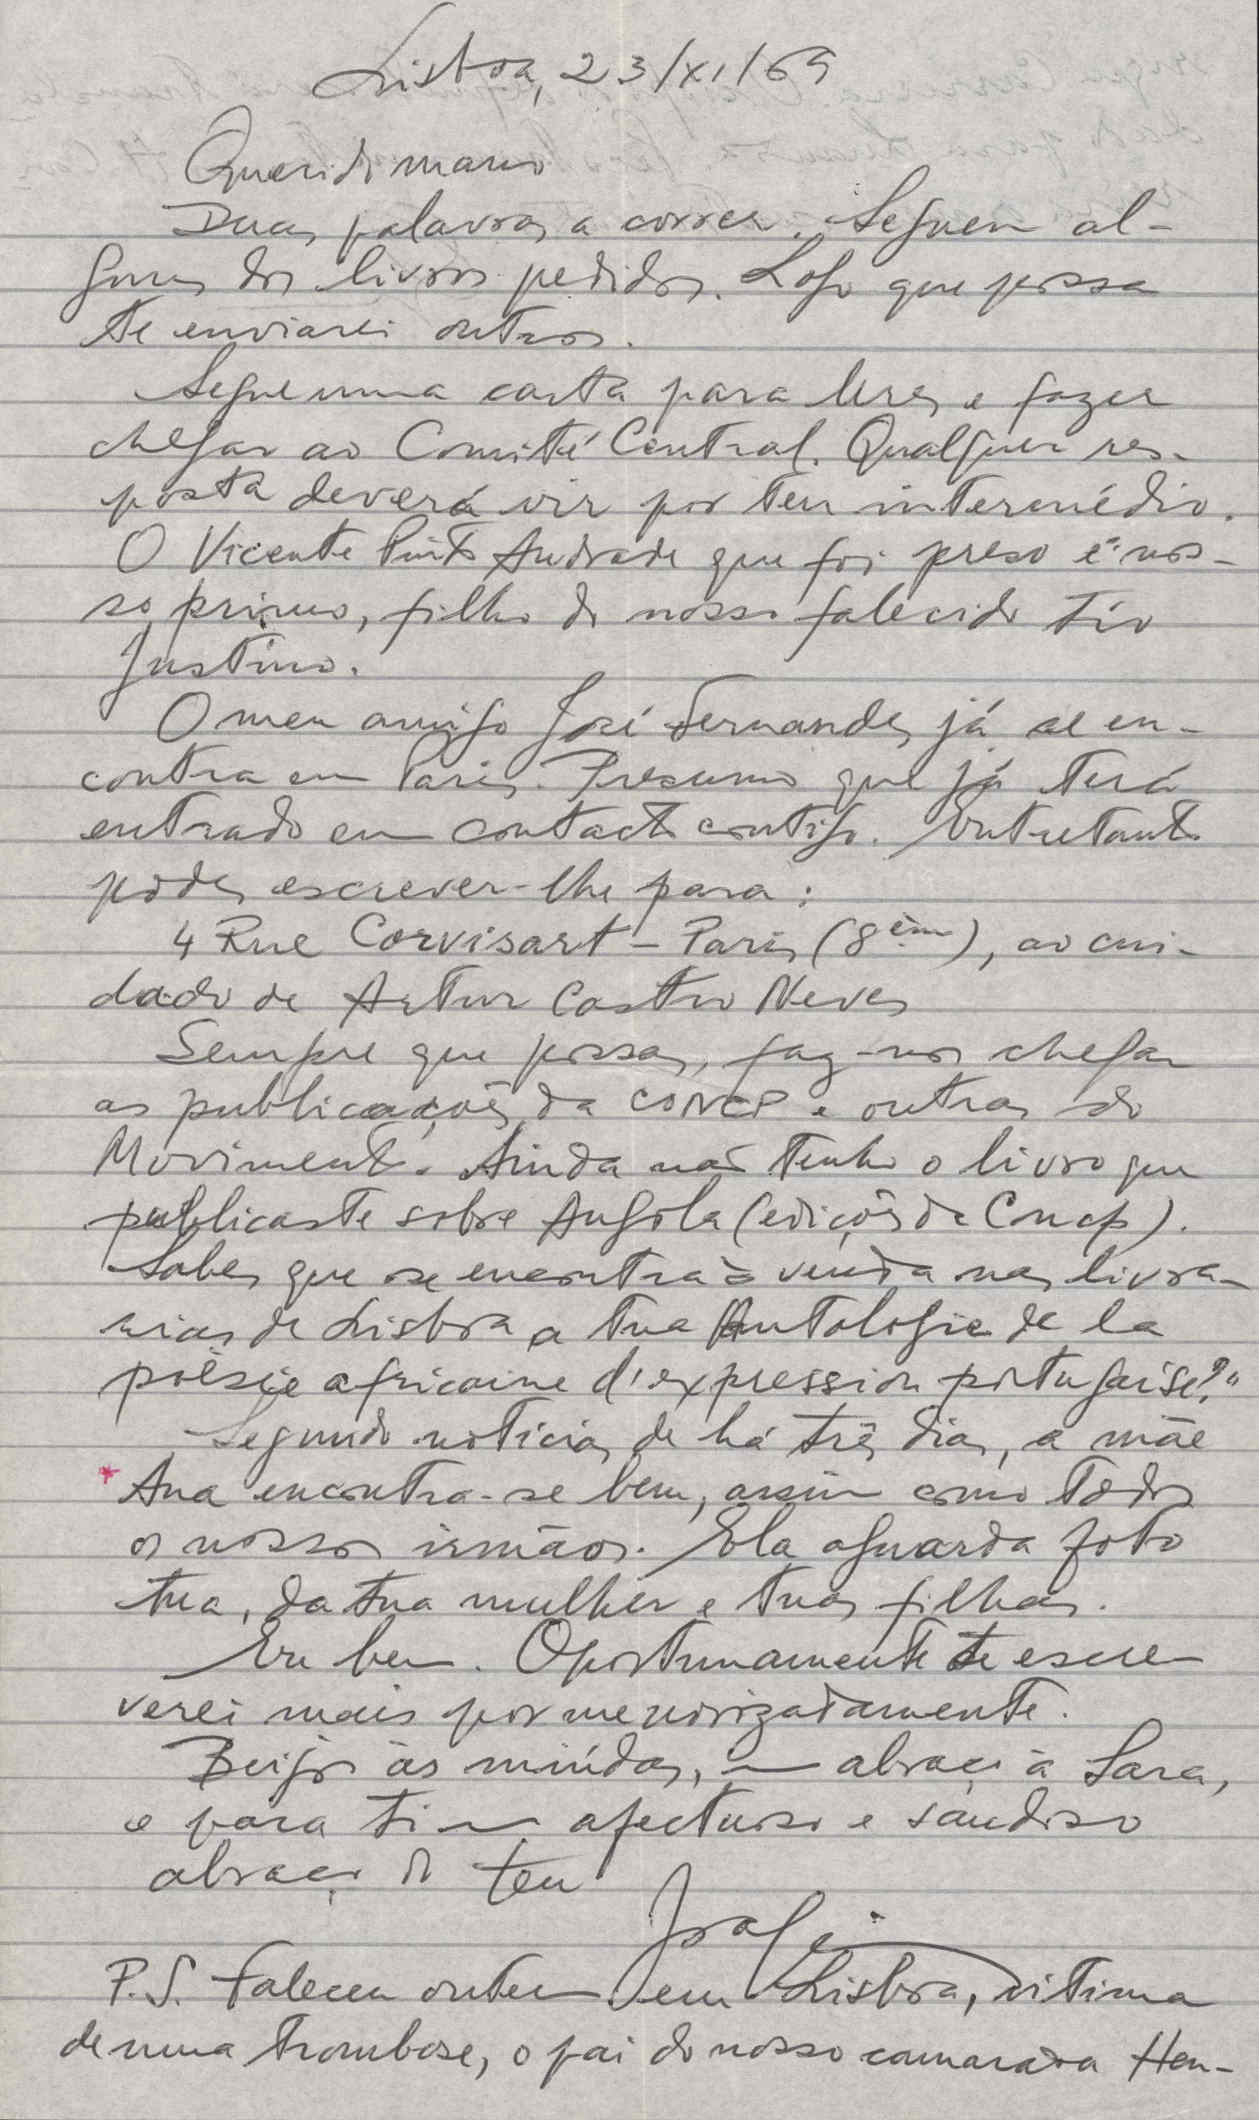 Lisboa, 23/XI/69
Querido mano
Duas palavras a correr. Seguem al-
guns dos livros pedidos. Logo que possa
te enviarei outros.
Segue uma carta para leres e fazer
chegar ao Comité Central. Qualquer res-
posta deverá vir por teu intermédio.
O Vicente Pinto Andrade que foi preso é nos-
so primo, filho do nosso falecido tio
Justino.
O meu amigo José Fernandes já se en-
contra em Paris. Presumo que já terá
entrado em contacto contigo. Entretanto
podes escrever-lhe para:
4 Rue Corvisart - Paris (8ème), ao cui-
dado de Artur Castro Neves
Sempre que possas, faz-nos chegar
as publicações da CONCP e outras do
Movimento. Ainda não tenho o livro que
publicaste sobre Angola (edições da Concp).
Sabes que se encontra à venda nas livra-
rias de Lisboa a tua Antologie de la
poèsie africaine d'expression portugaise?"
Segundo notícias de há três dias, a mãe
* Ana encontra-se bem, assim como todos
os nossos irmãos. Ela aguarda foto
tua, da tua mulher e tuas filhas.
Eu bem. Oportunamente te escre-
verei mais pormenorizadamente.
Beijos às miúdas, um abraço à Sara,
e para ti um afectuoso e saudoso
abraço do teu
P.S. Faleceu ontem em Lisboa, vitima
de uma trombose, o pai do nosso camarada Hen-